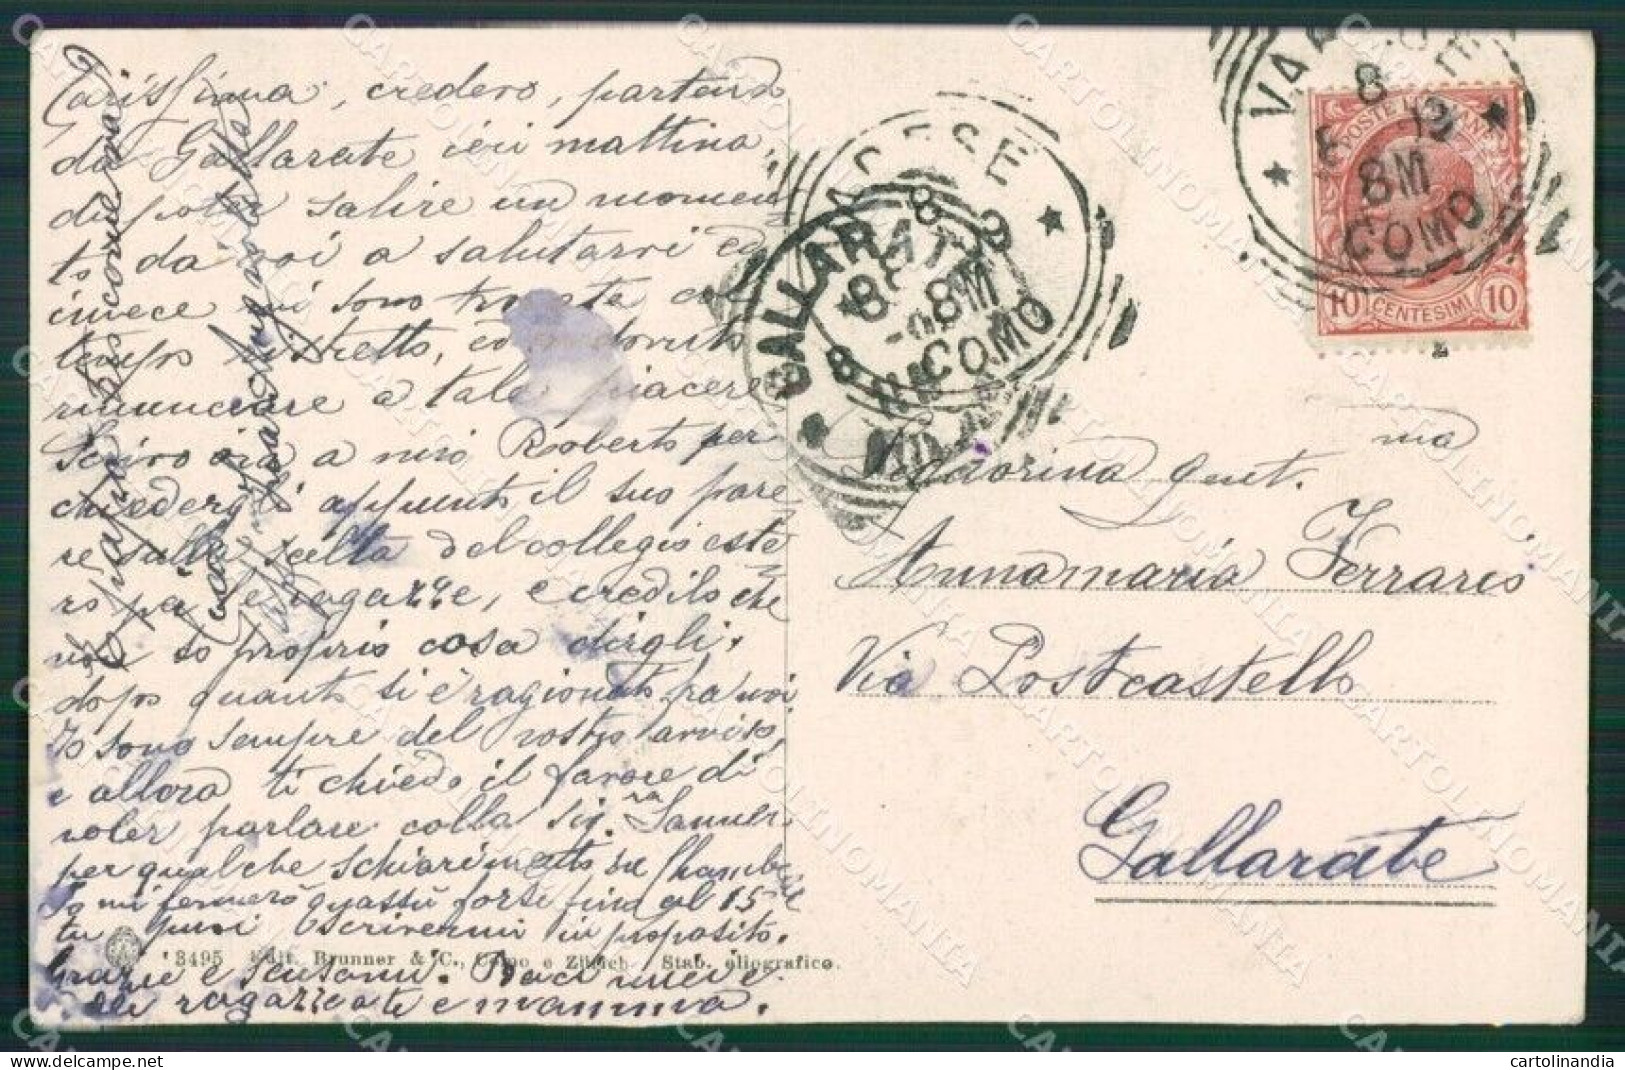 Carissima, credevo, partendo
da Gallarate ieri mattina,
di poter salire un momen
to da voi a salutarvi ed
invece mi sono trovata col
tempo ristretto, ed ho dovuto
rinunciare a tale piacere
Scrivo ora a mio Roberto per
chiedergli appunto il suo pare
re sulla scelta del collegio este
ro pel ragazze, e credilo che
non so proprio cosa dirgli.
dopo quanto si è ragionato fra noi
Io sono sempre del vostro avviso,
e allora ti chiedo il favore di
voler parlare colla Sig.ra
per qualche schiarimento su
Io mi fermerò quassù forse fino al 15 e
tu puoi scrivermi in proposito.
Grazie e scusami. Baci
alle ragazze a te e mamma.
3495 Edit. Brunner & C., Como e Zürich Stab. eliografico.
VARESE
8
8M
COMO
VARESE
8 9
8M
COMO
GALLARATE
8
MILANO
POSTE ITALIANE
10 CENTESIMI 10
ma
Signorina gent.
Annamaria Ferrario
Via Postcastello
Gallarate
CARTOLINOMANIA
cartolinandia